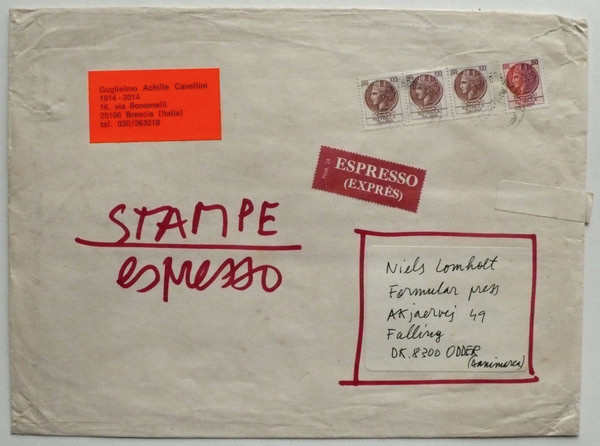 Guglielmo Achille Cavellini
1914-2014
16, via Bonomelli
25100 Brescia (Italia)
tel. 030/363218
100
100
100
ESPRESSO
(EXPRÈS)
STAMPE
espresso
Niels Lomholt
Formular press
AKjaervej 49
Falling
DK.8300 ODDER
(Danimarca)